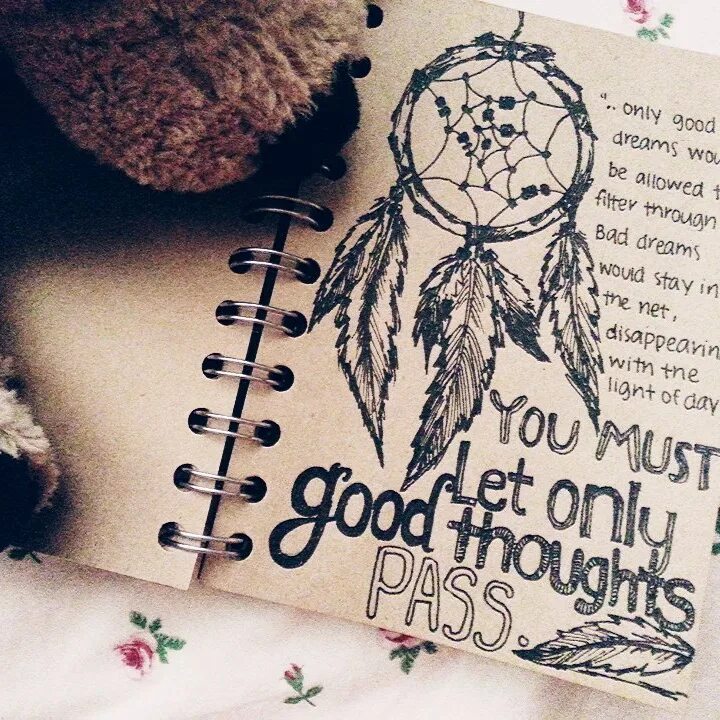 ".. only good
dreams wou
be allowed t
filter through
Bad dreams
would stay in
the net,
disappearin
with the
light of day
YOU MUST
Let only
good thoughts
PASS.